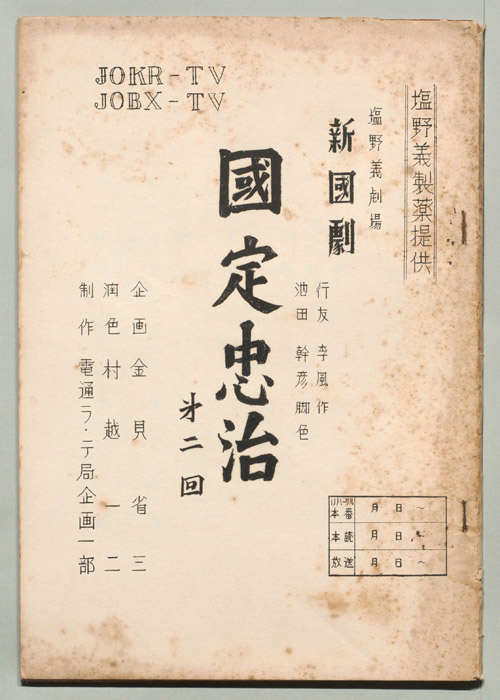 JOKR-TV
JOBX-TV
塩野義製薬提供
塩野義劇場
新國劇
行友李風作
池田幹彦脚色
國定忠治
才二回
企画金貝省三
润色村越一二
制作電通ラ・テ局企画一部
本番 月 日 〜
本読 月 日 〜
放送 月 日 〜